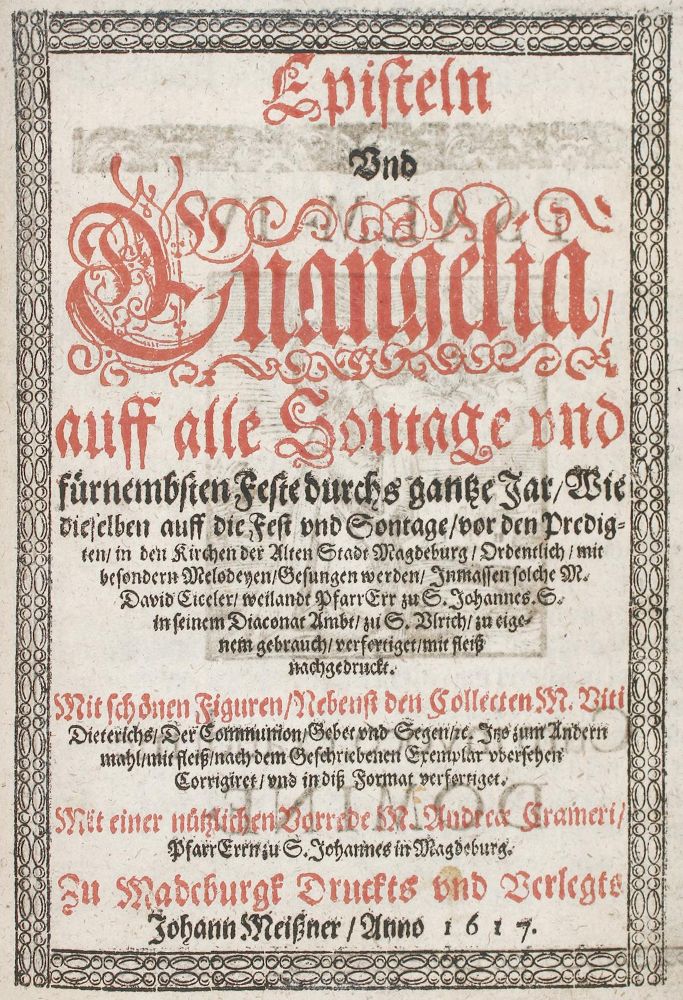 Episteln
Vnd
Euangelia/
auff alle Sontage vnd
fürnembsten Feste durchs gantze Jar/ Wie
dieselben auff die Fest vnd Sontage/ vor den Predig-
ten/ in den Kirchen der Alten Stadt Magdeburg/ Ordentlich/ mit
besondern Melodeyen/ Gesungen werden/ Inmassen solche M.
David Ciceler/ weilandt PfarrErr zu S. Johannes. S.
in seinem Diaconat Ambt/ zu S. Vlrich/ zu eige-
nem gebrauch/ verfertiget/ mit fleiß
nachgedruckt.
Mit schönen Figuren/ Nebenst den Collecten M. Viti
Dieterichs/ Der Communion/ Gebet vnd Segen/ ꝛc. Jtzs zum Andern
mahl/ mit fleiß/ nach dem Geschriebenen Exemplar vbersehen
Corrigiret/ vnd in diß Format verfertiget.
Mit einer nützlichen Vorrede M. Andreæ Crameri/
PfarrErrn zu S. Johannes in Magdeburg.
Zu Madeburgk Druckts vnd Verlegts
Johann Meißner/ Anno 1617.